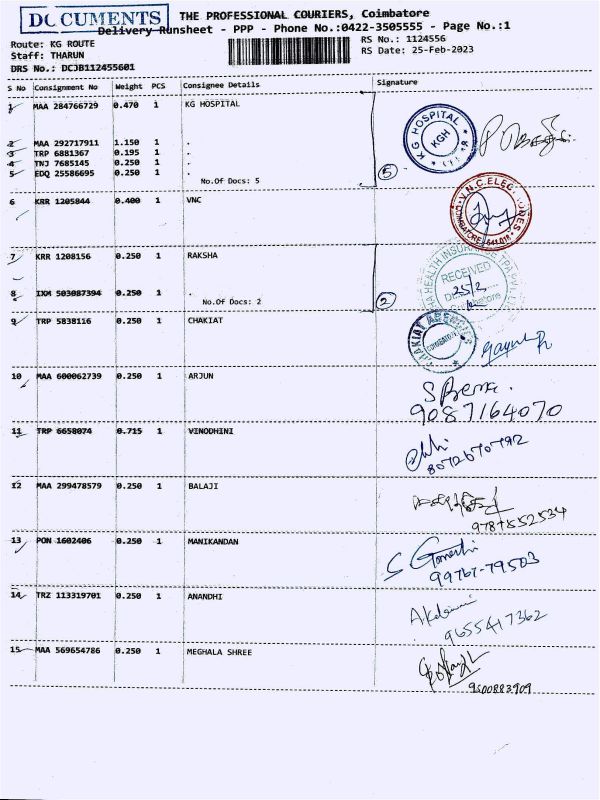 DOCUMENTS
THE PROFESSIONAL COURIERS, Coimbatore
Delivery Runsheet - PPP - Phone No.:0422-3505555 - Page No.:1
Route: KG ROUTE
RS No.: 1124556
Staff: THARUN
RS Date: 25-Feb-2023
DRS No.: DCJB112455601
S No Consignment No Weight PCS Consignee Details Signature
1 MAA 284766729 0.470 1 KG HOSPITAL
KG HOSPITAL
KGH
2 MAA 292717911 1.150 1 .
3 TRP 6881367 0.195 1 .
4 TNJ 7685145 0.250 1 .
5 EDQ 25586695 0.250 1 .
No.Of Docs: 5
5
6 KRR 1205844 0.400 1 VNC
V.N.C.ELEC
641 018
7 KRR 1208156 0.250 1 RAKSHA
HEALTH INSURANCE TPA PVT
RECEIVED
25/2
8 IXM 503087394 0.250 1 .
No.Of Docs: 2
2
9 TRP 5838116 0.250 1 CHAKIAT
CHAKIAT AGENCIES
COIMBATORE
10 MAA 600062739 0.250 1 ARJUN
9087164070
11 TRP 6658074 0.715 1 VINODHINI
8072670792
12 MAA 299478579 0.250 1 BALAJI
13 PON 1602406 0.250 1 MANIKANDAN
99767-79503
14 TRZ 113319701 0.250 1 ANANDHI
9655417362
15 MAA 569654786 0.250 1 MEGHALA SHREE
9500883909